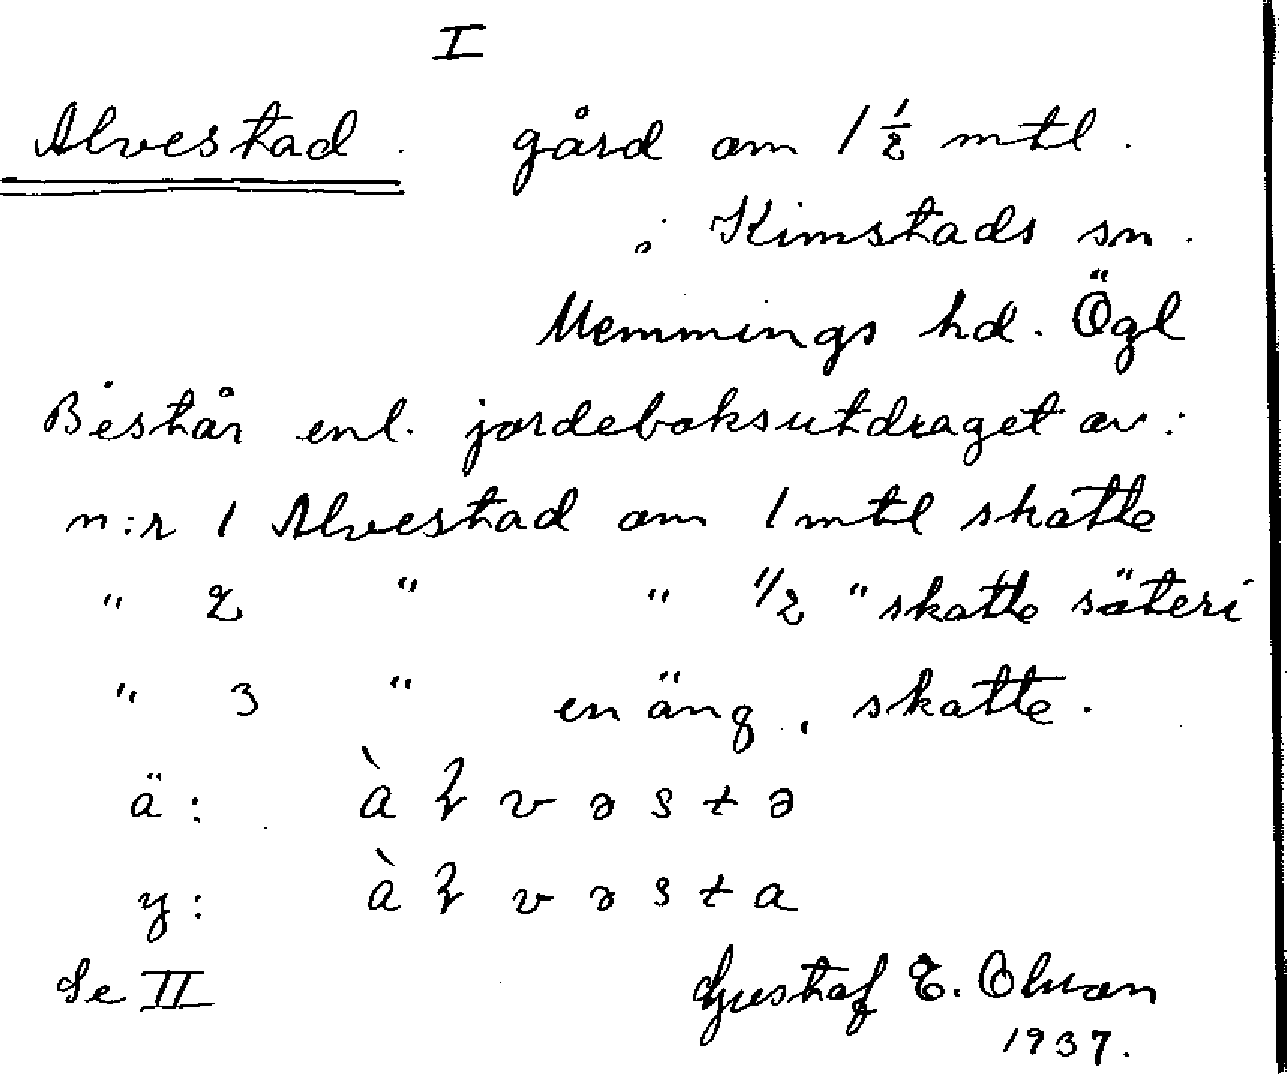 I
Alvestad. gård om 1 1/2 mtl.
i Kimstads sn.
Memmings hd. Ögl
Består enl. jordeboksutdraget av:
n:r 1 Alvestad om 1 mtl skatte
" 2 " " 1/2 " skatte säteri
" 3 " en äng, skatte.
ä: àɽvəstə
y: àɽvəsta
Se II Gustaf E. Olsson
1937.